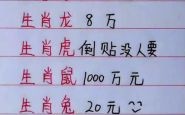 生肖龙 8万
生肖虎 倒贴没人要
生肖鼠 1000万元
生肖兔 20元